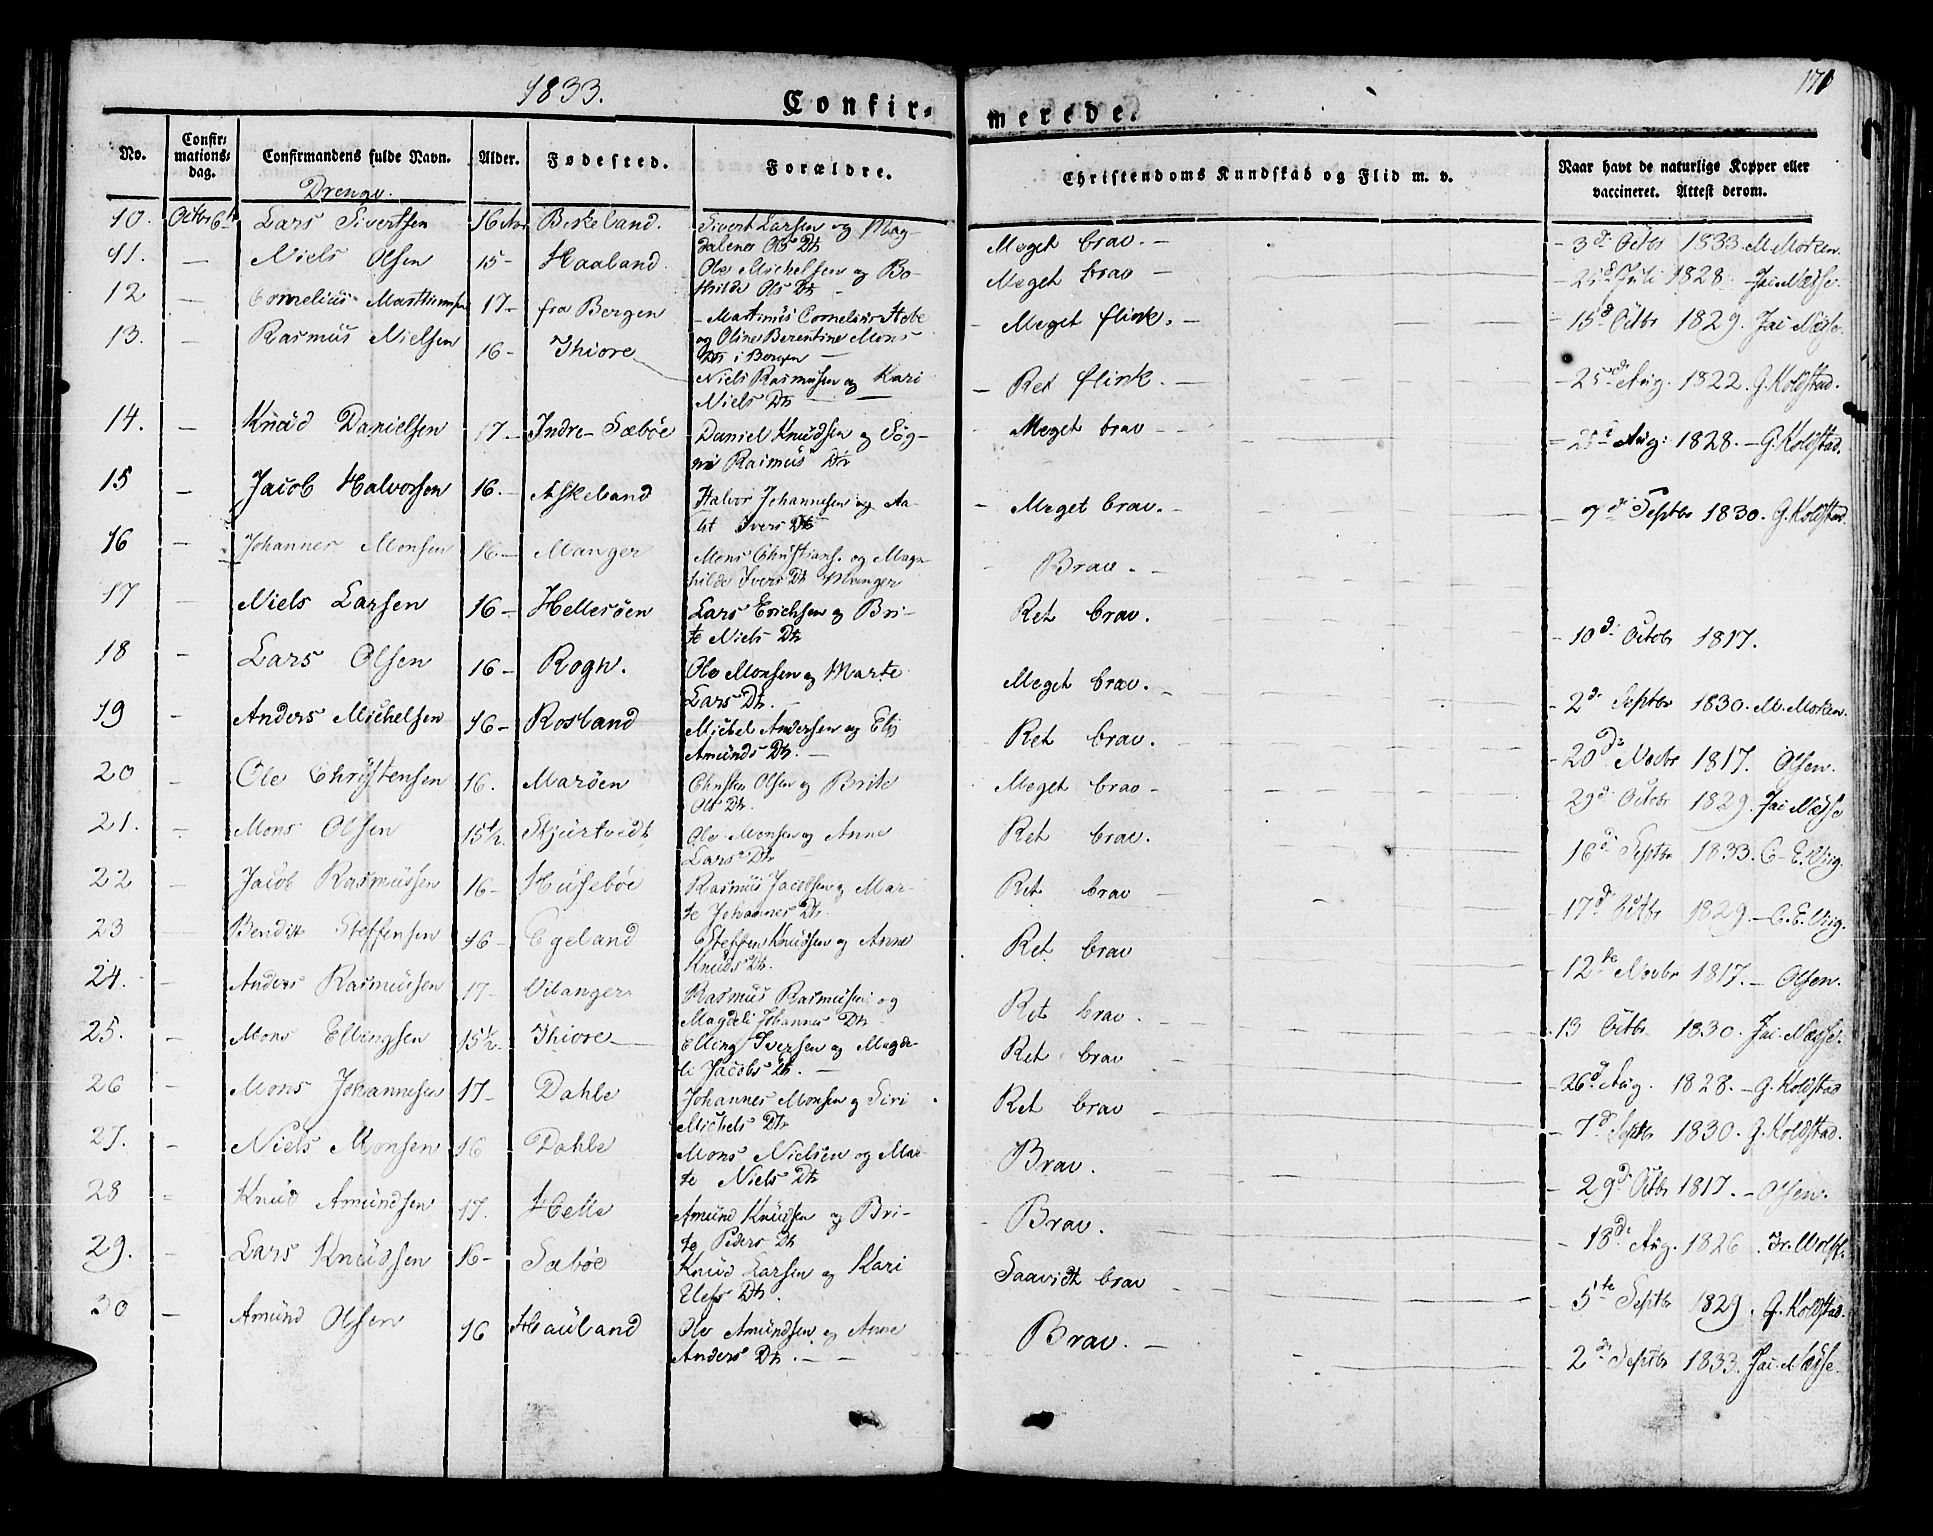 1833.
171
Confir-
merede.
No.
Confir-
mations-
dag.
Confirmandens fulde Navn.
Alder.
Fødested.
Forældre.
Christendoms Kundskab og Flid m. v.
Naar havt de naturlige Kopper eller
vaccineret. Attest derom.
Drenge.
10. Octbr 6te Lars Sivertsen 16 Birkeland. Sivert Larsen og Mag-
dalene Ols Dtr Meget brav. - - 3d Octb 1833. M. Morken.
11. - Niels Olsen 15- Haaland. Ole Michelsen og Bo-
thilde Ols Dtr - Meget brav - - 25d Juli 1828. Jac. Næsse.
12 - Cornelius Marthinusen 17- fra Bergen - Martinus Cornelius
og Oline Berentine Mons
Dtr i Bergen - - Meget flink. - - 15d Octbr 1829. Jac. Næsse.
13. - Rasmus Nielsen 16- Thiore Niels Rasmusen og Kari
Niels Dtr - - - Ret flink. - - 25de Aug. 1822. G. Koldstad.
14. - Knud Danielsen 17- Indre Sæbøe Daniel Knudsen og Sig-
ni Rasmus Dtr - Meget brav - - 25d Aug: 1828. - G. Koldstad.
15 - Jacob Halvorsen 16.- Askeland Halvor Johannesen og Aa-
lit Ivers Dtr - Meget brav. - - 7d Septbr 1830. G. Koldstad.
16 - Johannes Monsen 16- Manger Mons Christians. og Mag-
hilde Ivers Dtr Manger - Brav. -
17 - Niels Larsen 16- Hellesøen Lars Erichsen og Bri-
te Niels Dtr Ret brav. - 10d Octobr 1817.
18 - Lars Olsen 16- Rogn. Ole Monsen og Marte
Lars Dtr. - Meget brav. - - 2d Septbr 1830. M. Morken.
19 - Anders Michelsen 16- Rosland Michel Andersen og Elij
Amunds Dtr. - Ret brav. - 20de Novbr 1817. Olsen.
20 - Ole Christensen 16. Marøen Christen Olsen og Brite
Ols Dtr. Meget brav - 29d Octobr 1829. Jac. Næsse
21. - Mons Olsen 15½. Ole Monsen og Anne
Lars Dtr Ret brav. 16d Septbr 1833. C. E. Viig.
22 - Jacob Rasmussen 16- Husebøe Rasmus Jacobsen og Mar-
te Johannes Dtr. Ret brav - 17d Octbr 1829. - C. E. Viig.
23 - Bendix Steffensen 16- Egeland Steffen Knudsen og Anne
Knuds Dtr. Ret brav - 12te Novbr 1817. - Olsen.
24. - Anders Rasmussen 17- Vilanger Rasmus Rasmusen og
Magdeli Johannes Dtr Ret brav. - 13 Octbr 1830. Jac. Næsse.
25. - Mons Ellingsen 15½. Thiore Elling Iversen og Magde-
li Jacobs Dtr. - Ret brav - 26d Aug. 1828. - G. Koldstad
26 - Mons Johannesen 17- Dahle Johannes Monsen og Siri
Michels Dtr Ret brav - - 7d Septbr 1830. G. Koldstad.
27. - Niels Monsen 16 Dahle Mons Nielsen og Mar-
te Niels Dtr Brav. - - 29d Octbr 1817. - Olsen.
28 - Knud Amundsen 17. Helle Amund Knudsen og Bri-
te Peders Dtr - Brav. - - 18de Aug. 1826
29. - Lars Knudsen 16- Sæbøe Knud Larsen og Kari
Dtr. Saavidt brav - - 5te Septbr 1829. G. Koldstad.
30 - Amund Olsen 16 Hauland Ole Amundsen og Anne
Anders Dtr. - - Brav. - - 2de Septbr 1833. Jac. Næsse.